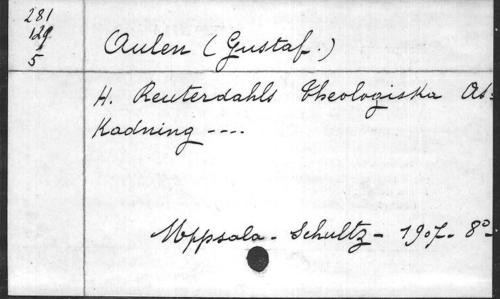 281
129.
5
Aulen (Gustaf.)
H. Reuterdahls theologiska As-
Kadning ----
Uppsala - Schultz - 1907. 8º-